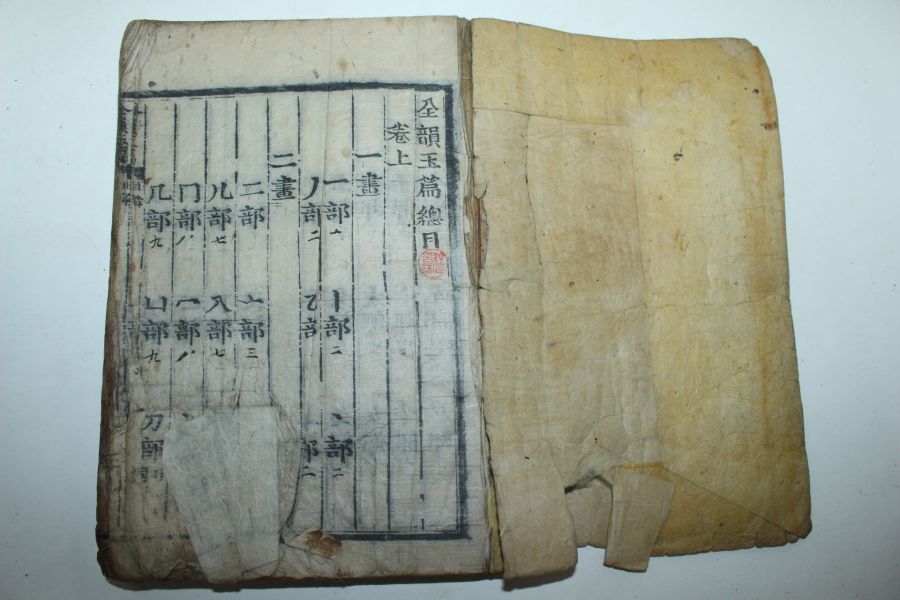 全韻玉篇總目
卷上
一畫
一部一 丨部二 丶部二
丿部二 乙部 部二
二畫
二部 亠部三
儿部七 入部七
冂部八 冖部八
几部九 凵部九 刀部